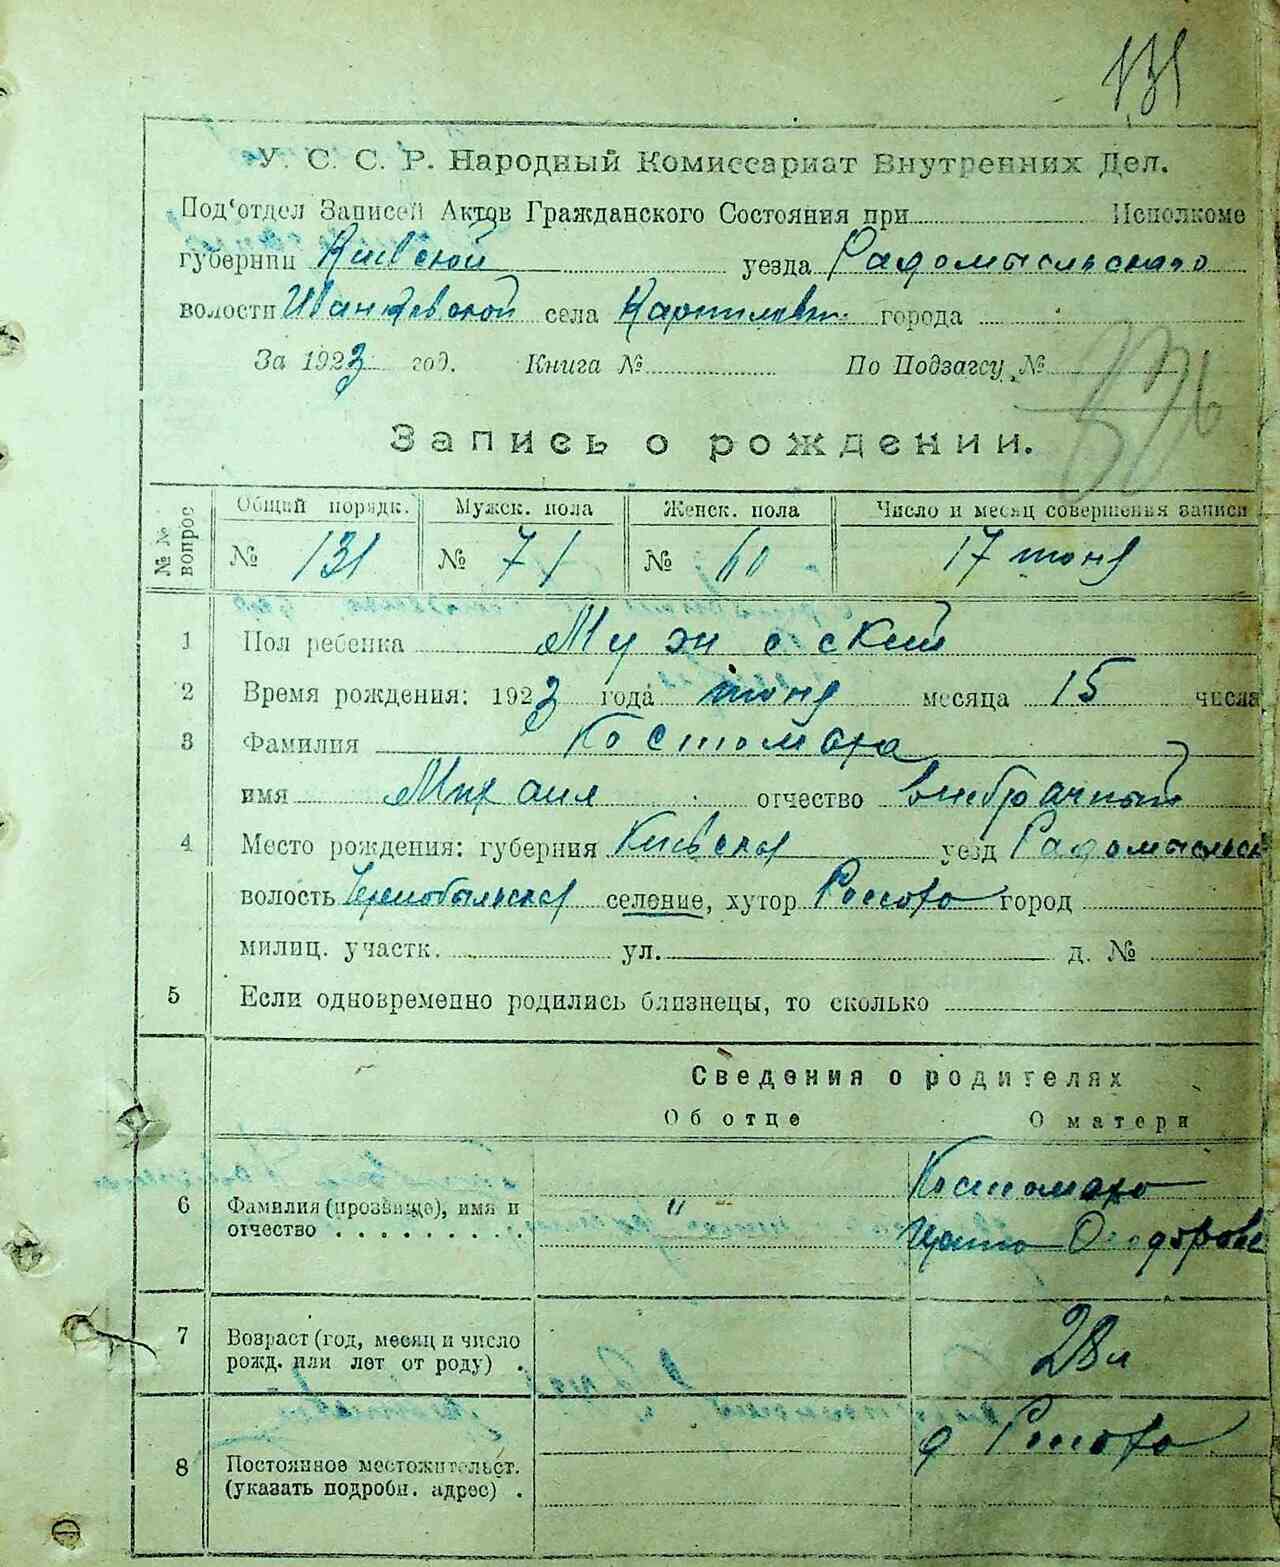 131
У. С. С. Р. Народный Комиссариат Внутренних Дел.
Под'отдел Записей Актов Гражданского Состояния при Исполкоме
губернии Киевской уезда Радомысльского
волости Иванковской села Карпиловки города
За 1923 год. Книга № По Подзагсу №
Запись о рождении.
№ № вопрос Общий порядк. Мужск. пола Женск. пола Число и месяц совершения записи
№ 131 № 71 № 60 17 июня
1 Пол ребенка Мужеский
2 Время рождения: 1923 года июня месяца 15 числа
3 Фамилия Костомаха
имя Михаил отчество внебрачный
4 Место рождения: губерния Киевская уезд Радомысльск
волость Чернобыльская селение, хутор Россоха город
милиц. участк. ул. д. №
5 Если одновременно родились близнецы, то сколько
Сведения о родителях
Об отце О матери
6 Фамилия (прозвище), имя и отчество " Костомаха
Федорове
7 Возраст (год, месяц и число рожд. или лет от роду) . 28 л
8 Постоянное местожительст. (указать подробн. адрес) . д Россоха